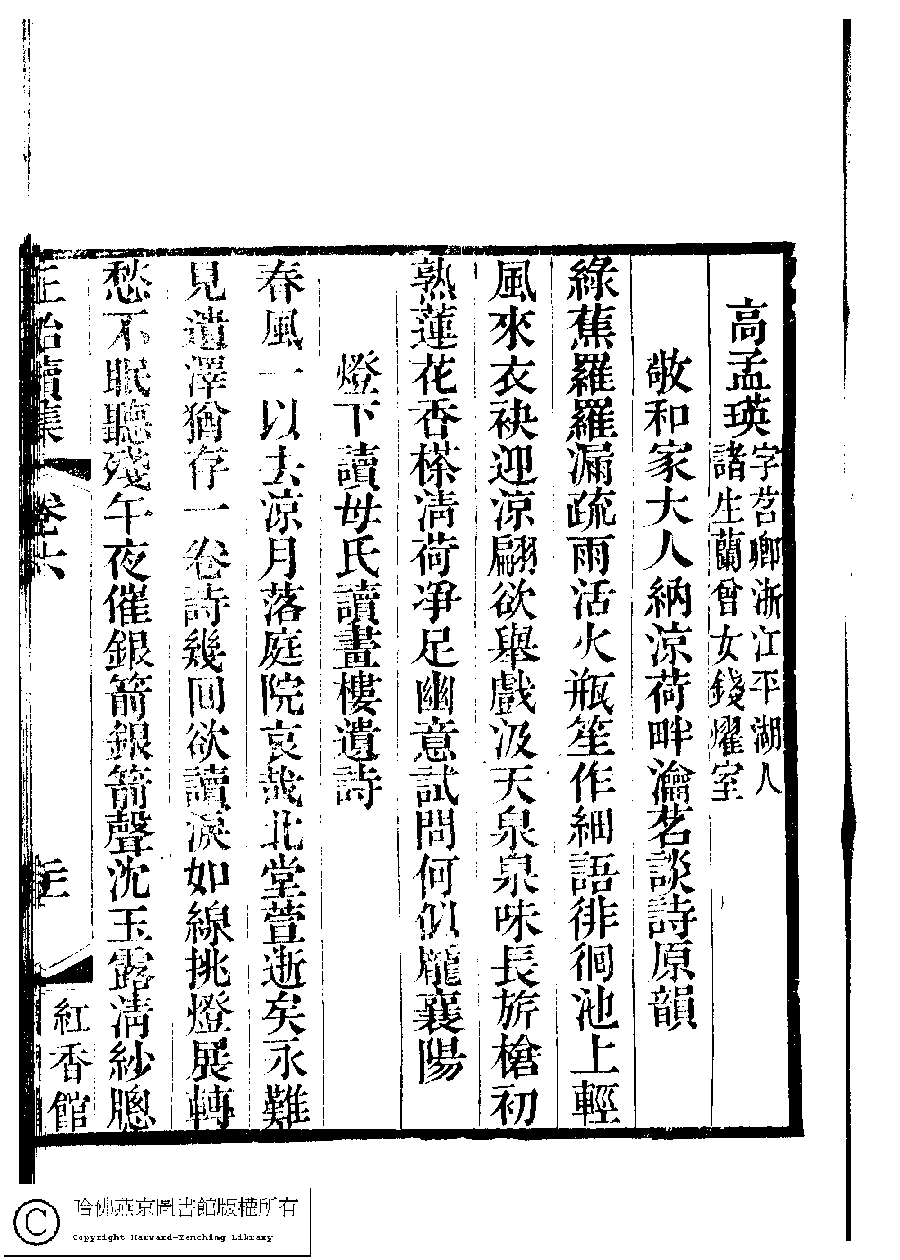 高孟瑛字苕卿浙江平湖人
諸生蘭曾女錢燿室
敬和家大人納涼荷畔瀹茗談詩原韻
綠蕉羅羅漏疏雨活火瓶笙作細語徘徊池上輕
風來衣袂迎涼翩欲舉戲汲天泉泉味長旂槍初
熟蓮花香榇凊荷凈足幽意試問何似龐襄陽
燈下讀母氏讀畫樓遺詩
春風一以去涼月落庭院哀哉北堂萱逝矣永難
見遺澤猶存一卷詩幾回欲讀淚如線挑燈展轉
愁不眠聽殘午夜催銀箭銀箭聲沈玉露淸紗牕
正始續集 卷六 紅香館
哈佛燕京圖書館版權所有
Copyright Harvard-Yenching Library